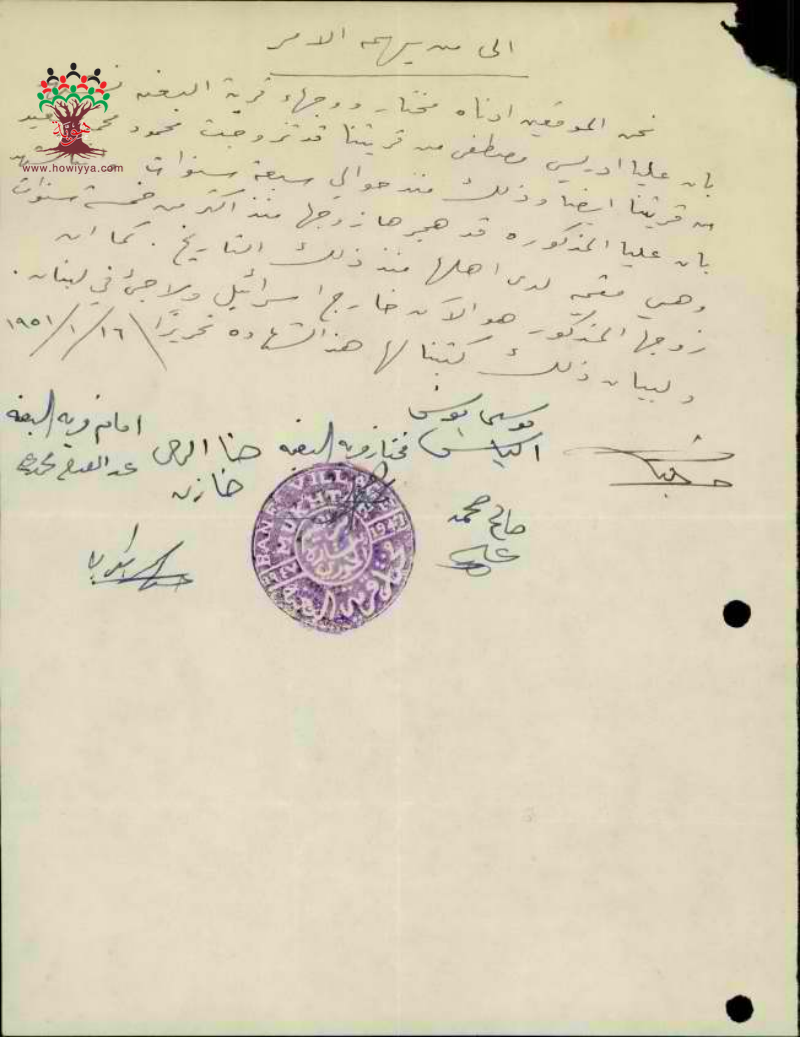 الى من يهمه الامر
نحن الموقعين ادناه مختار ووجهاء قرية البعنه
بان عليا ادريس مصطفى من قريتنا قد تزوجت محمود محمد
من قريتنا ايضا وذلك منذ حوالي سبعة سنوات
بان عليا المذكوره قد هجرها زوجها منذ اكثر من خمسة سنوات
وهي مقيمه لدى اهلها منذ ذلك التاريخ. كما ان
زوجها المذكور هو الآن خارج اسرائيل ولاجئ في لبنان.
ولبيان ذلك كتبنا لها هذه الشهاده تحريرًا ١٦/١/١٩٥١
www.howiyya.com
موسى يوسف
الياس
مختار قرية البعنه
حنا
خازن
امام قرية البعنه
صالح محمد
علي
MUKHTAR
VILLAGE
194